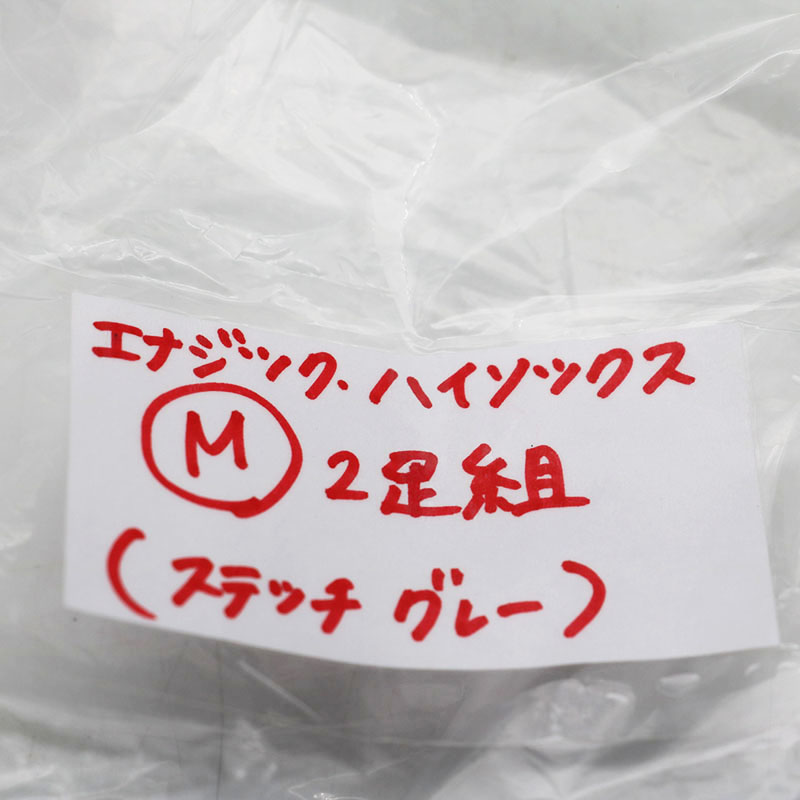 エナジック・ハイソックス
Ⓜ 2足組
(ステッチ グレー)